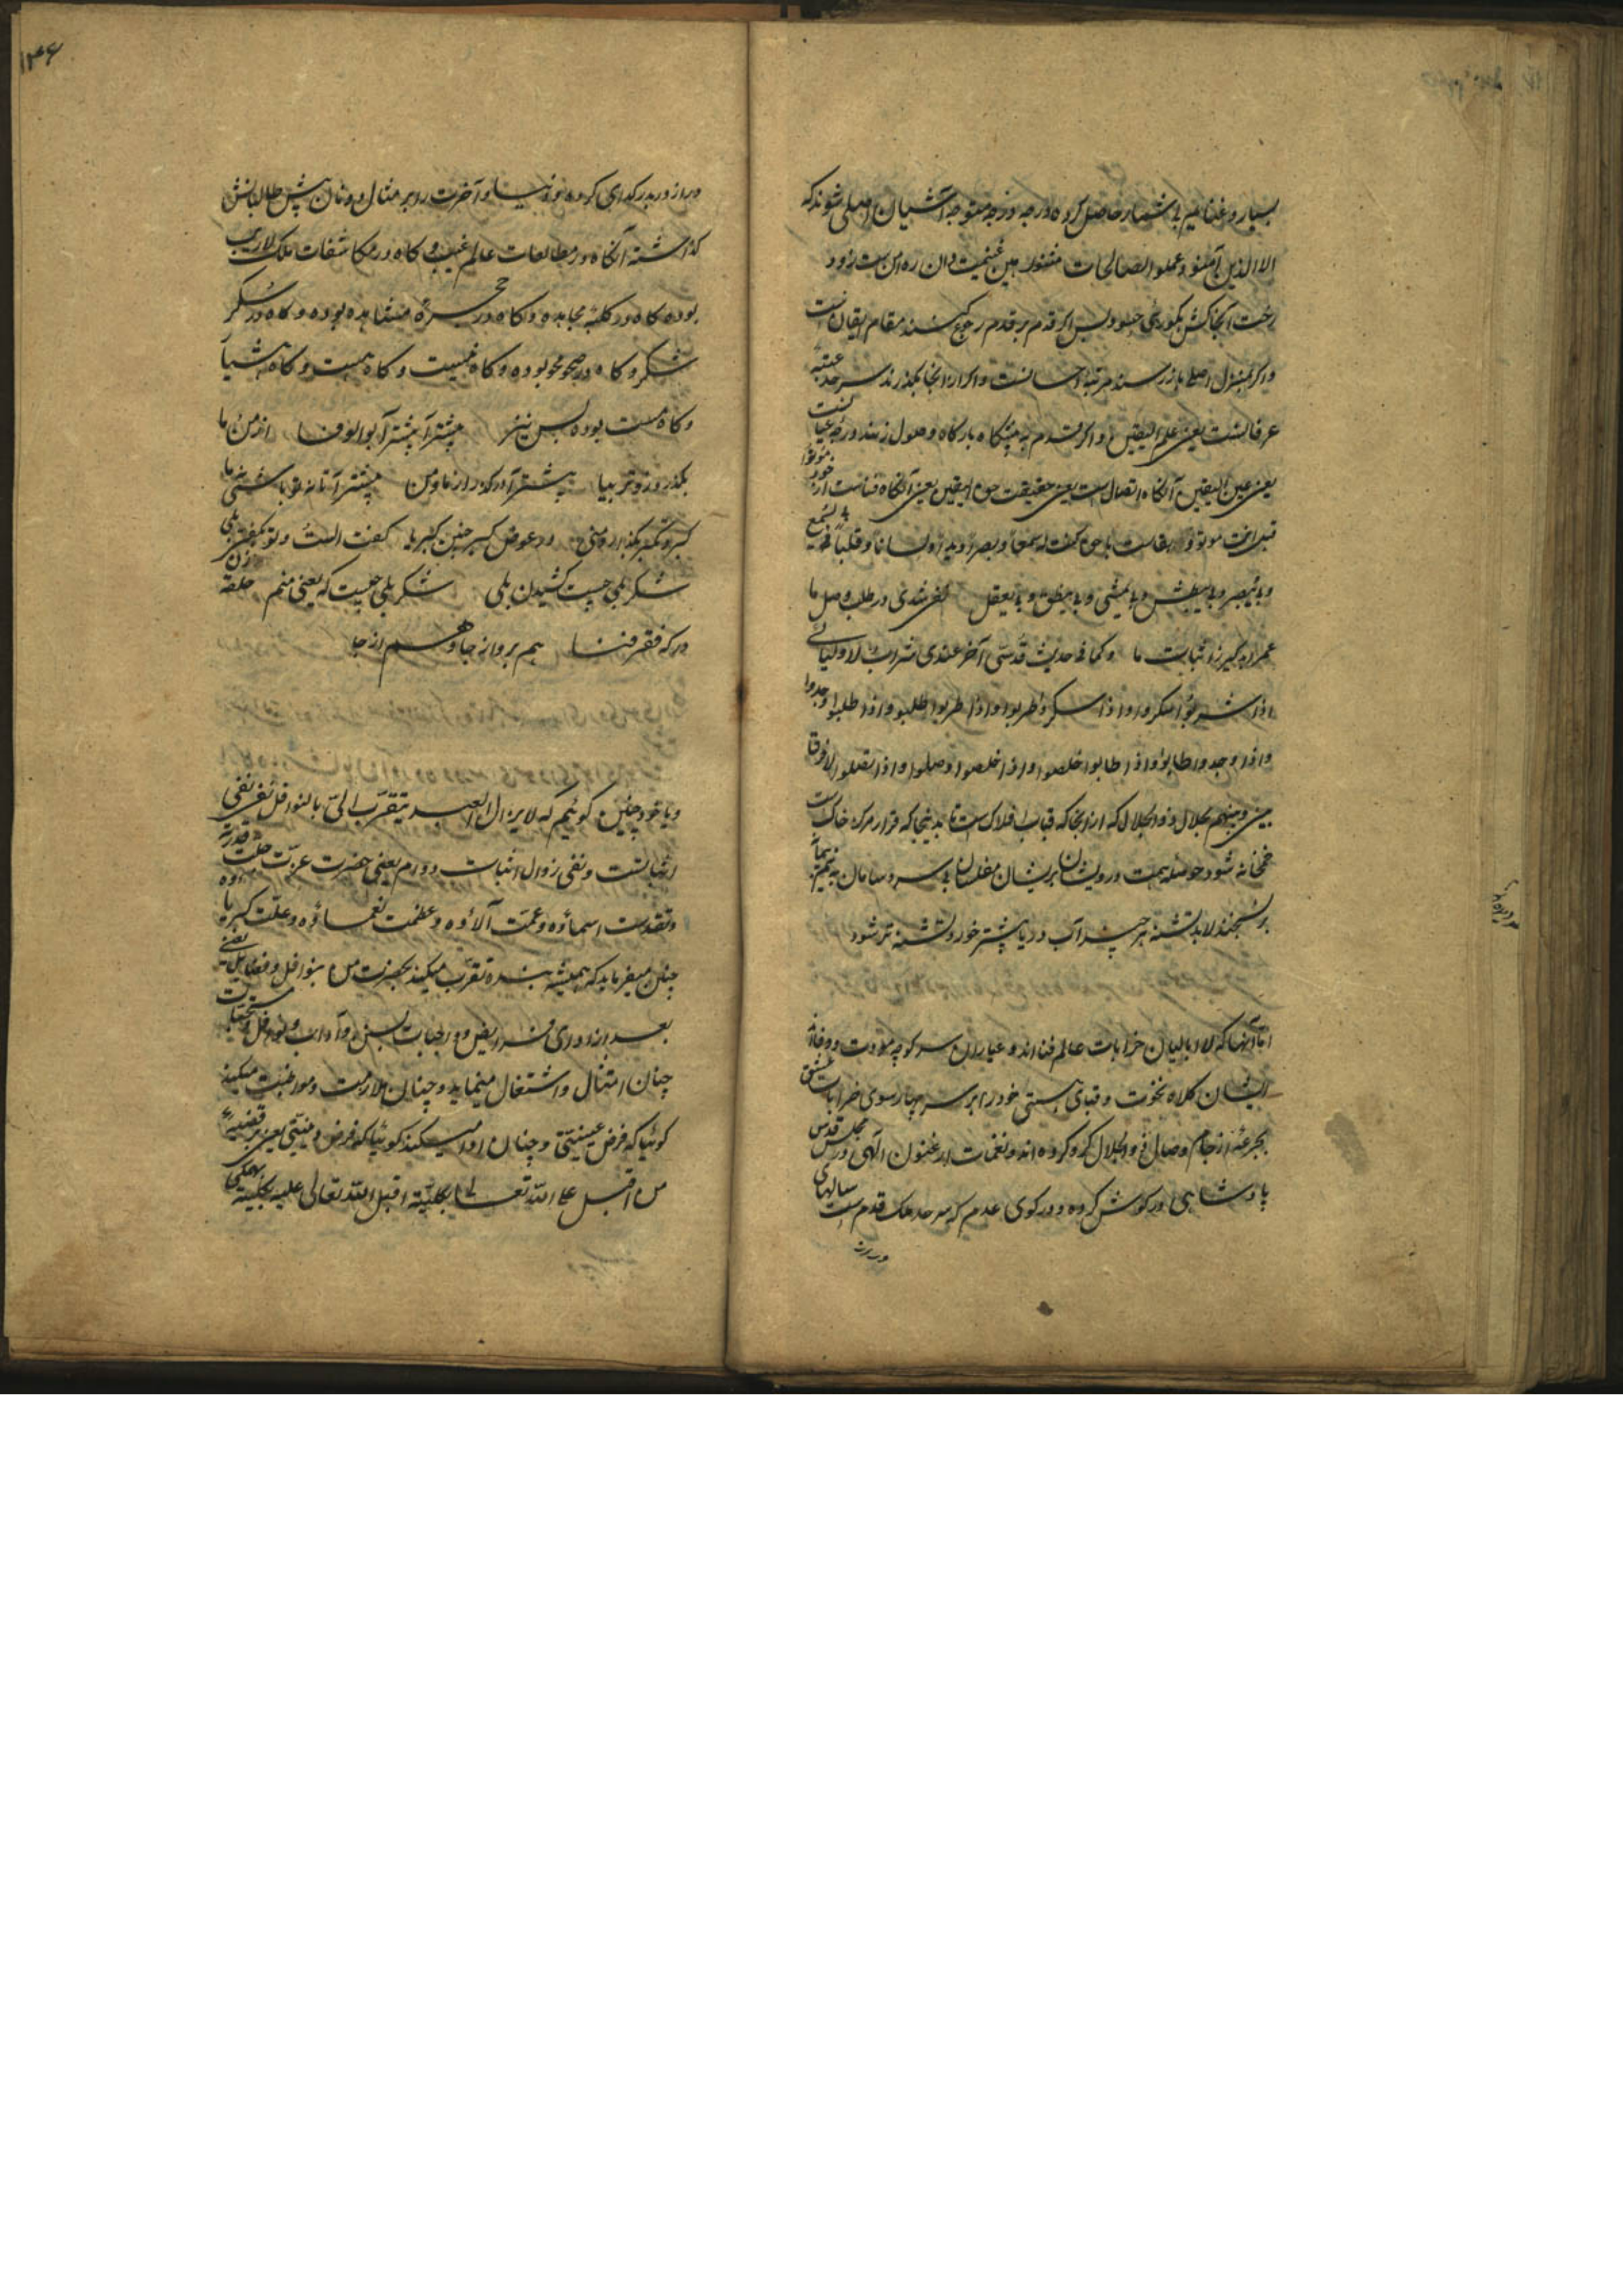 بسیار و غنایم بی شمار حاصل کرده درجه درجه متوجه آشیان اصلی شوند که
الا الذین آمنو و عملوا الصالحات هین غنیمت دان ره این ست زود
رخت آنجا کش بکوری حسود پس اگر قدم بر قدم رجوع کنند مقام ایقان است
و اگر بمنزل اصلی باز رسند مرتبه احسانست و اگر از آنجا بگذرند سرحد عتبه
عرفانست یعنی علم الیقین و اگر قدم به پیشگاه بارگاه وصول زنند درجه عیانست
یعنی عین الیقین آنگاه اتصال است یعنی حقیقت حق الیقین یعنی آنگاه فناست از خود موتوا
قبل انت موتو و بقاست با حق کنت له سمعا و بصرا و یدا و لسانا و قلبا فبی یسمع
و بی یبصر و بی یبطش و بی یمشی و بی ینطق و بی یعقل در طلب وصل ما
عمر ابد گیر ز اثبات ما و کما فی حدیث قدسی آخر عندی شراب لاولیائی
اذا شربوا سکروا و اذا سکروا طربوا و اذا طربوا طلبوا و اذا طلبوا وجدوا
و اذا وجدوا طابوا و اذا طابوا خلصوا و اذا خلصوا وصلوا و اذا اتصلوا لا فرق
بینی و بینهم بجلال ذو الجلال که از آنجا که قباب افلاک ست تا بدینجا که قرار مرکز خاکست
خمخانه شود حوصله همت درویشان پریشان مفلسان بی سر و سامان به نیم پیمانه
بر نسنجند لابد تشنه هر چند آب دریا بیشتر خورد تشنه تر شود
اما آنها که لاابالیان خرابات عالم فنااند و عیاران سر کوچه مودت و وفااند
ایشان کلاه نخوت و قبای هستی خود را بر سر چهار سوی خرابات عشق
بجرعه از جام وصال ذو الجلال گرو کرده اند و نغمات ارغنون الهی در مجلس قدس
پادشاهی در گوش کرده و در کوی عدم که سرحد ملک قدم است سالهای
دراز
۱۴۶
دراز دربدر گدای کرده و دنیا و آخرت را بر مثال دو نان پیش طالبانش
گذاشته آنگاه در مطالعات عالم غیب و گاه در مکاشفات ملک لاریب
بوده گاه در کلبه مجاهده و گاه در حجره مشاهده بوده و گاه در سکر
شکر و گاه در صحو محو بوده و گاه نیست و گاه هست و گاه هشیار
و گاه مست بوده پس نیز پیشتر آ پیشتر آ بوالوفا از من و ما
بگذر و زوتر بیا پیشتر آ درگذر از ما و من پیشتر آ تا نه تو باشی نه ما
کبر و تکبر بگذار و منی در عوض کبر چنین کبریا گفت الست و تو بگفتی بلی
شکر بلی چیست کشیدن بلی شکر بلی چیست که یعنی منم حلقه زن
درگه فقر و فنا هم برو از جا و هم از جا
و یا خود چنین گوئیم که لایزال العبد یتقرب الی بالنوافل نفی نفی
اثباتست و نفی زوال اثبات دوام یعنی حضرت عزت جلت قدرته
و تقدست اسماؤه و عمت آلاؤه و عظمت نعماؤه و علت کبریاؤه
چنان میفرماید که همیشه بنده تقرب میکند بحضرت من بنوافل و فضایل یعنی
بعد از ادای فرایض و واجبات بسنن و آداب و نوافل و مستحبات
چنان امتثال و اشتغال مینماید و چنان ملازمت و مواظبت میکند
گوئیا که فرض عینیتی و چنان ادا میکند گوئیا که فرض یعنی بر قضیه
من اقبل علی الله تعالی بکلیته اقبل الله تعالی علیه بکلیته